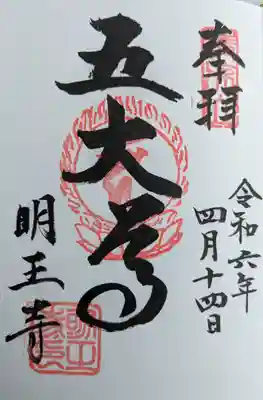 奉拝
令和六年
四月十四日
五大尊
明王寺